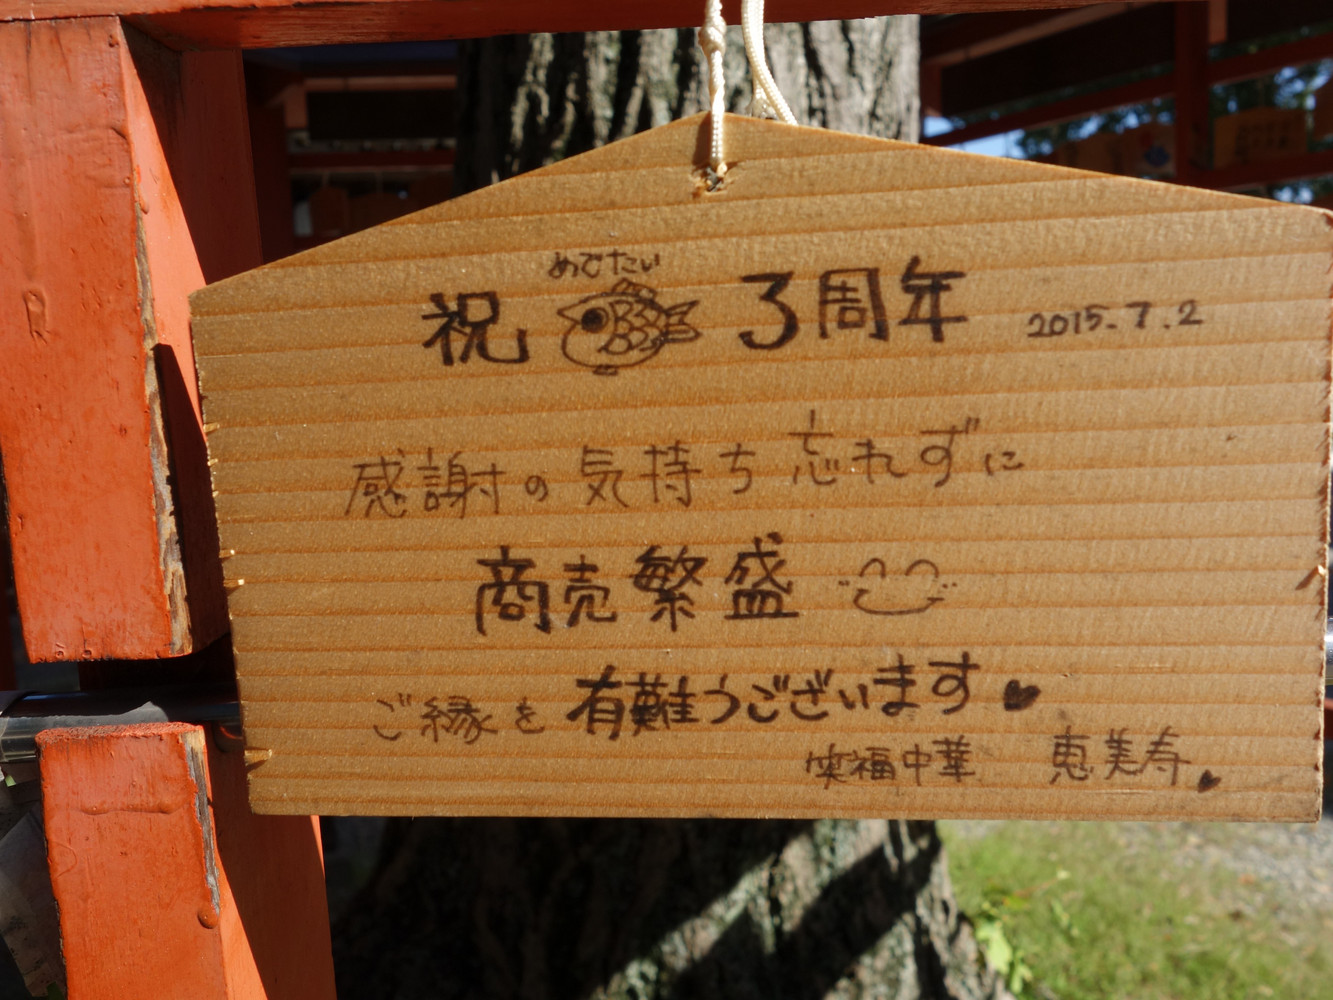 めでたい
祝 3周年 2015.7.2
感謝の気持ち忘れずに
商売繁盛
ご縁を有難うございます♥
笑福中華 恵美寿♥